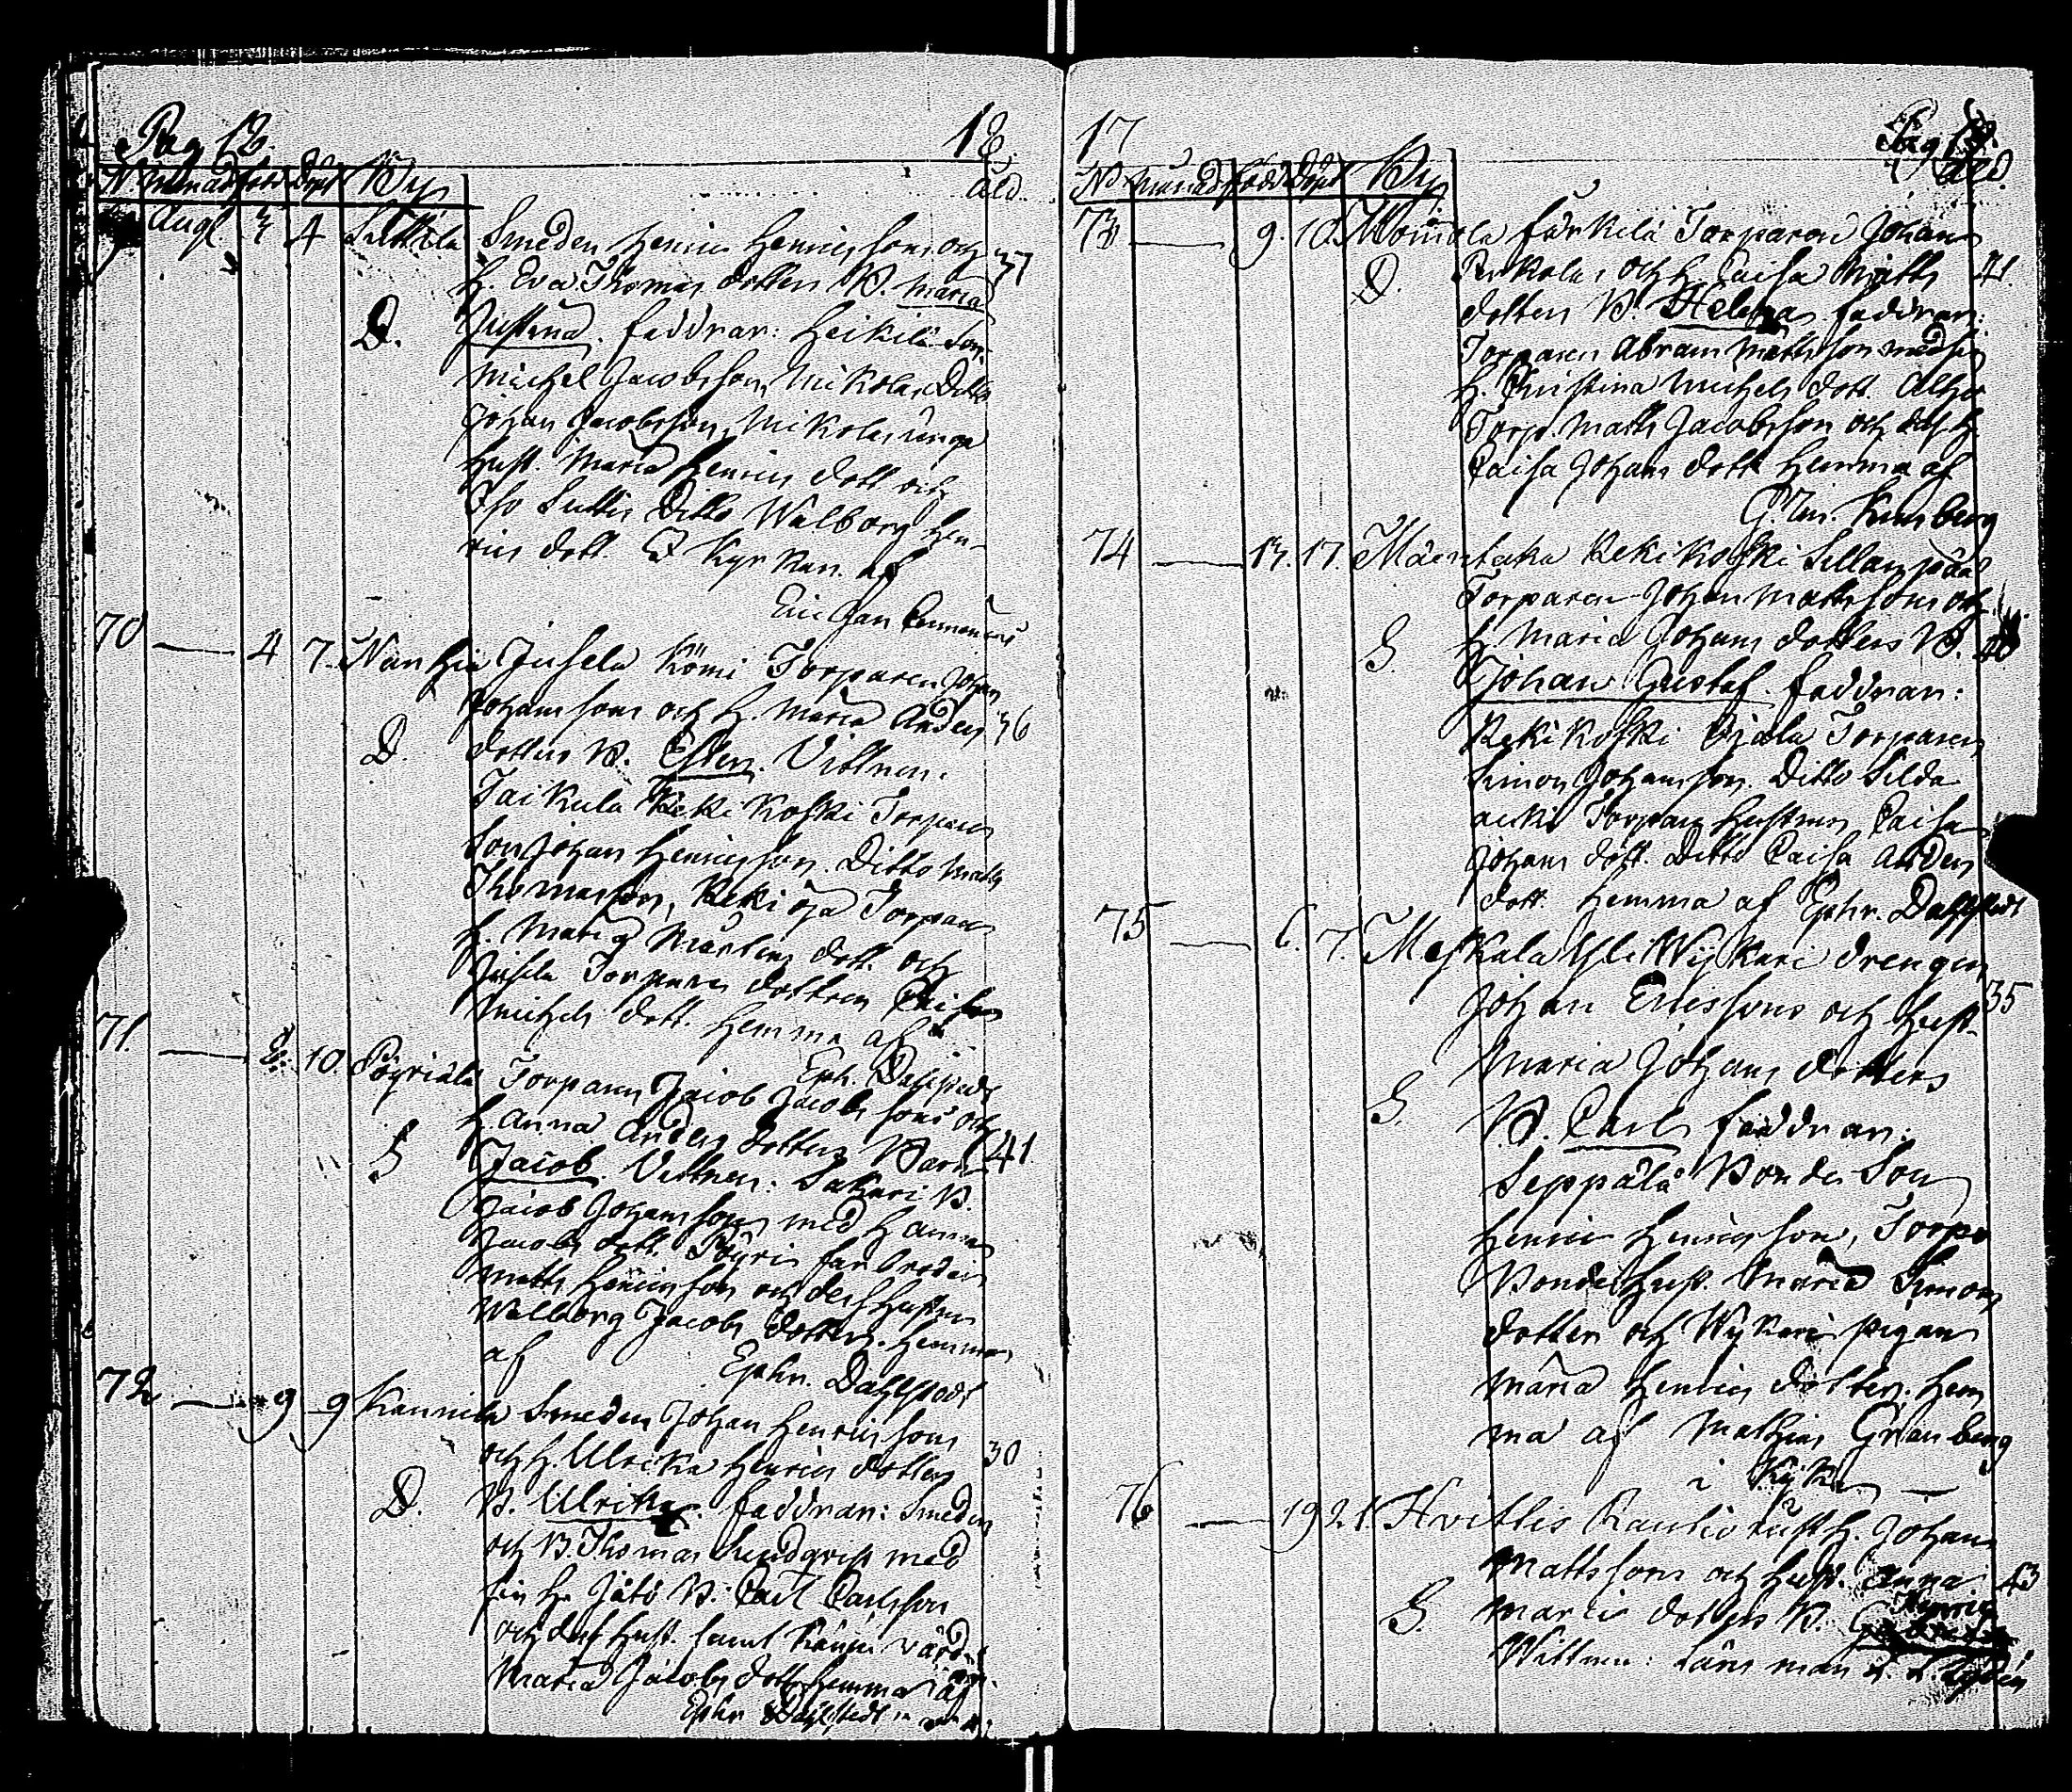 Pag 12. 18
N. Månad född Döpt By Åld.
Aug. 3 4 Suttila Smeden Henric Henrics sons och 37
h. Eva Thomas dotters B. Maria
D. Justina. faddrar: Heikilä Son
Michel Jacobsson, Mikolas Ditto
Johan Jacobsson, Mikolas unga
hust. Maria Henrics dott och
Iso Suttis Ditto Walborg Hen-
rics dott. I Kyrkan. af
Eric Jan
70 — 4 7. Nanhia Jusela Kömi Torparen Johan
Johans sons och h. Maria Anders 36
D. dotters B. Ester. Vittnen:
Taikula Kekikoski Torpare
Son Johan Henricsson. Ditto Matts
Thomasson, Kekioja Torpare
h. Maria Mårtens dott. och
Jusela Torpare dottren Caisa
Michels dott. hemma af
Eph. Dahlstedt
71. — 8. 10. Pöyriälä Torparen Jacob Jacobs sons och
h. Anna Anders dotters Barn 41
G Jacob. Vittnen: Sakari B.
Jacob Johansson med h Anna
Jacobs dott. Pöyris farbroder
Matts Henricsson och dess hustru
Walborg Jacobs dotter. hemma
af Ephr. Dahlstedt
72 — 9 9 Kannila Smeden Johan Henrics sons
och h. Ulrika Henrics dotters 30
D. B. Ulrika. faddrar: Smeden
och B. Thomas Lindqvist med
sin h. Jätö B: Carl Carlsson
och dess hust. samt
Maria Jacobs dott. hemma af
Ephr Dahlstedt
17 Pag 13.
N Månad född Döpt By Åld.
73 — 9. 10. Mommola Torparen Johan
D. och h. Caisa Matts 41.
dotters B. Helena faddrar:
Torparen Abram Mattsson med sin
h. Christina Michels dott.
Torp. Matts Jacobsson och dess h.
Caisa Johans dott. hemma af
74 — 13. 17. Mäentaka Kekikoski Sillanpää
Torparen Johan Matts sons och
G. h. Maria Johans dotters B.
Johan Gustaf. faddrar:
Kekikoski Ojala Torparen
Simon Johansson. Ditto Silda
Torpare hustrun Caisa
Johans dott. Ditto Caisa Anders
dott. hemma af Ephr. Dahlstedt
75 — 6. 7. Meskala Yli Wijkari drengen
Johan Ericssons och hust. 35
Maria Johans dotters
G. B. Carl faddrar:
Seppälä Bonde Son
Henric Henricsson, Torpo
Bonde hust. Maria Simons
dotter och Wijkari pigan
Maria Henrics dotter. hem
ma af Mathias Granberg
i
76 — 19 21. Hvittis Rautio rusth. Johan
Matts sons och hust. Anna 43
G. Maria dotters B.
Wittnen: Länsman